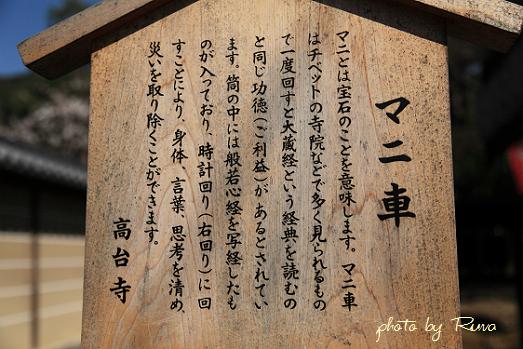 マニ車
マニとは宝石のことを意味します。マニ車
はチベットの寺院などで多く見られるもの
で一度回すと大蔵経という経典を読むの
と同じ功徳(ご利益)が あるとされてい
ます。筒の中には般若心経を写経したも
のが入っており、時計回り(右回り)に 回
すことにより、身体、言葉、思考を清め、
災いを取り除くことができます。
高台寺
photo by Runa